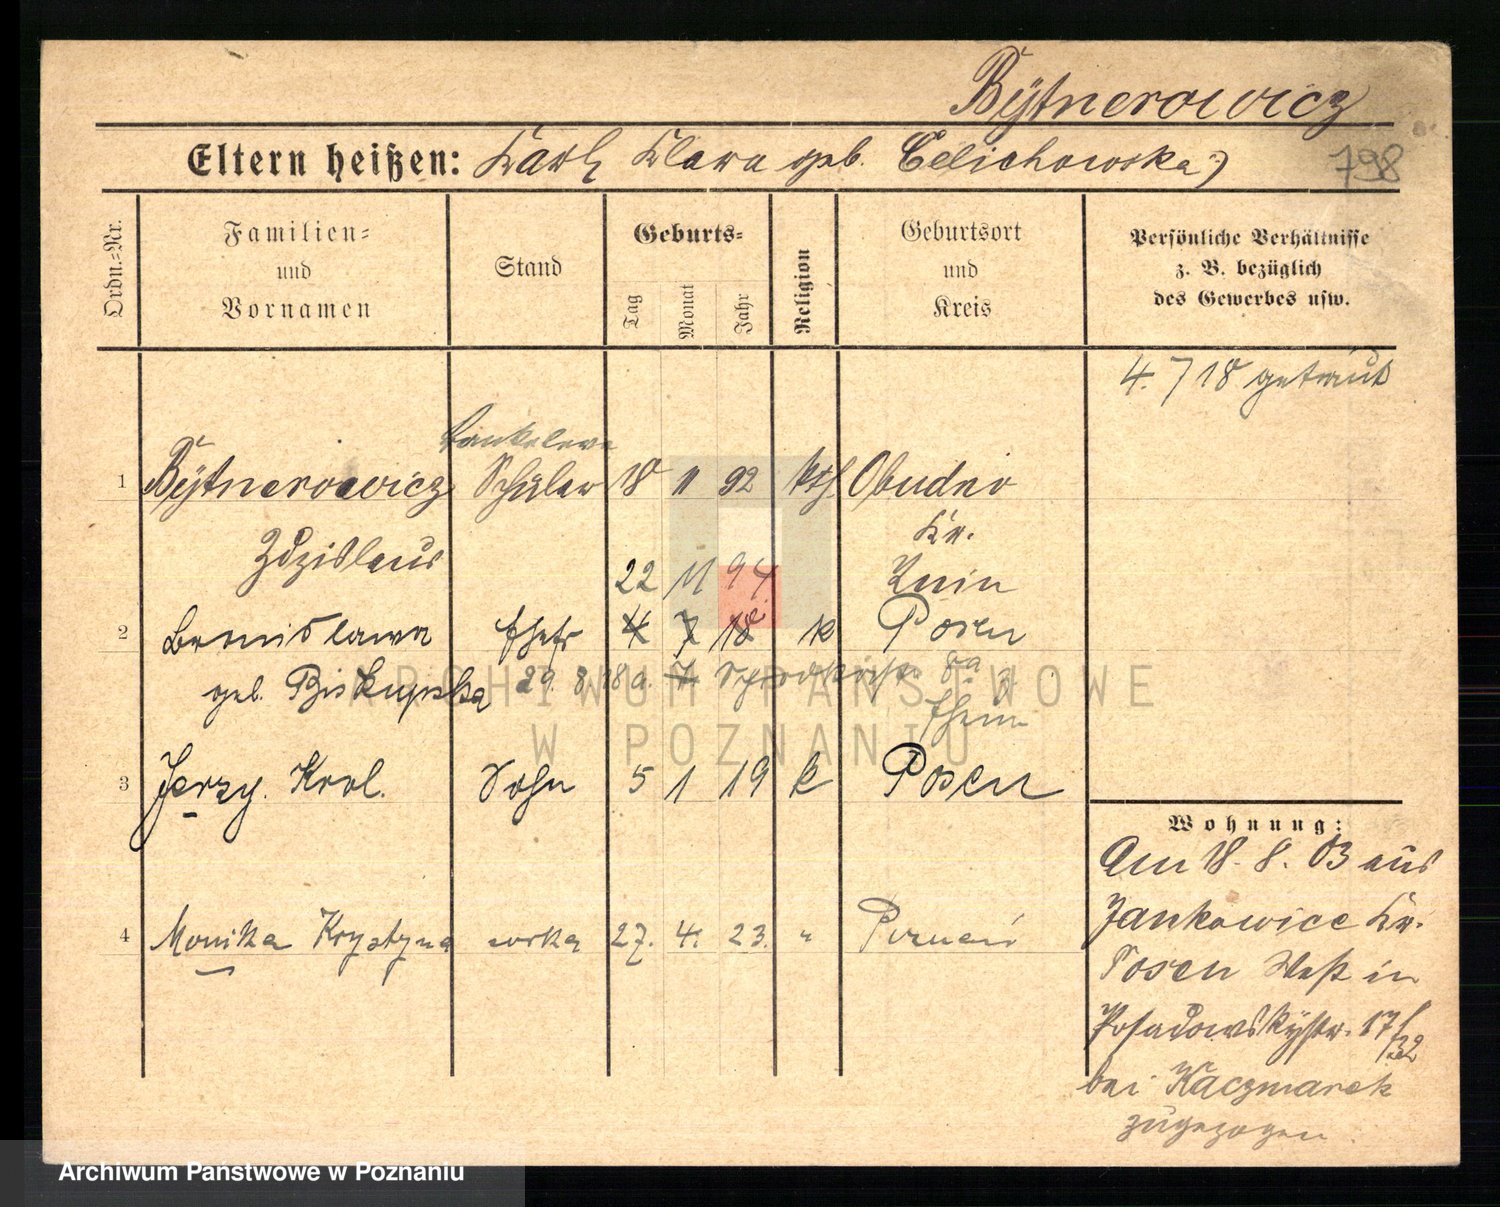 Bÿtnerowicz
Eltern heißen: Karl Klara geb. Celichowska
798
Ordn.-Nr.
Familien-
und
Vornamen
Stand
Geburts-
Tag
Monat
Jahr
Religion
Geburtsort
und
Kreis
Persönliche Verhältnisse
z. B. bezüglich
des Gewerbes usw.
4. 7 18 getraut
1 Bÿtnerowicz Schüler 18 11 92 kth Obudno
Zdzislaus Kr.
22 11 94 Znin
2 Bronislawa Ehefr 4 7 18 k Posen
geb. Biskupska 29. 8. 18
3 Jerzy Karol. Sohn 5 1 19 k Posen
4 Monika Krystyna córka 27. 4. 23. " Poznań
Wohnung:
Am 18. 8. 03 aus
Jankowice Kr.
Posen West in
Posadowskÿstr. 17
bei Kaczmarek
zugezogen.
ARCHIWUM PAŃSTWOWE
W POZNANIU
Archiwum Państwowe w Poznaniu